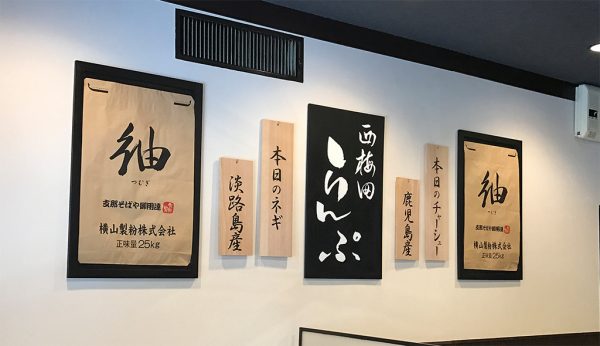 紬
つむぎ
支那そばや御用達
横山製粉株式会社
正味量25kg
本日のネギ
淡路島産
西梅田
らんぷ
本日のチャーシュー
鹿児島産
紬
つむぎ
支那そばや御用達
横山製粉株式会社
正味量25kg